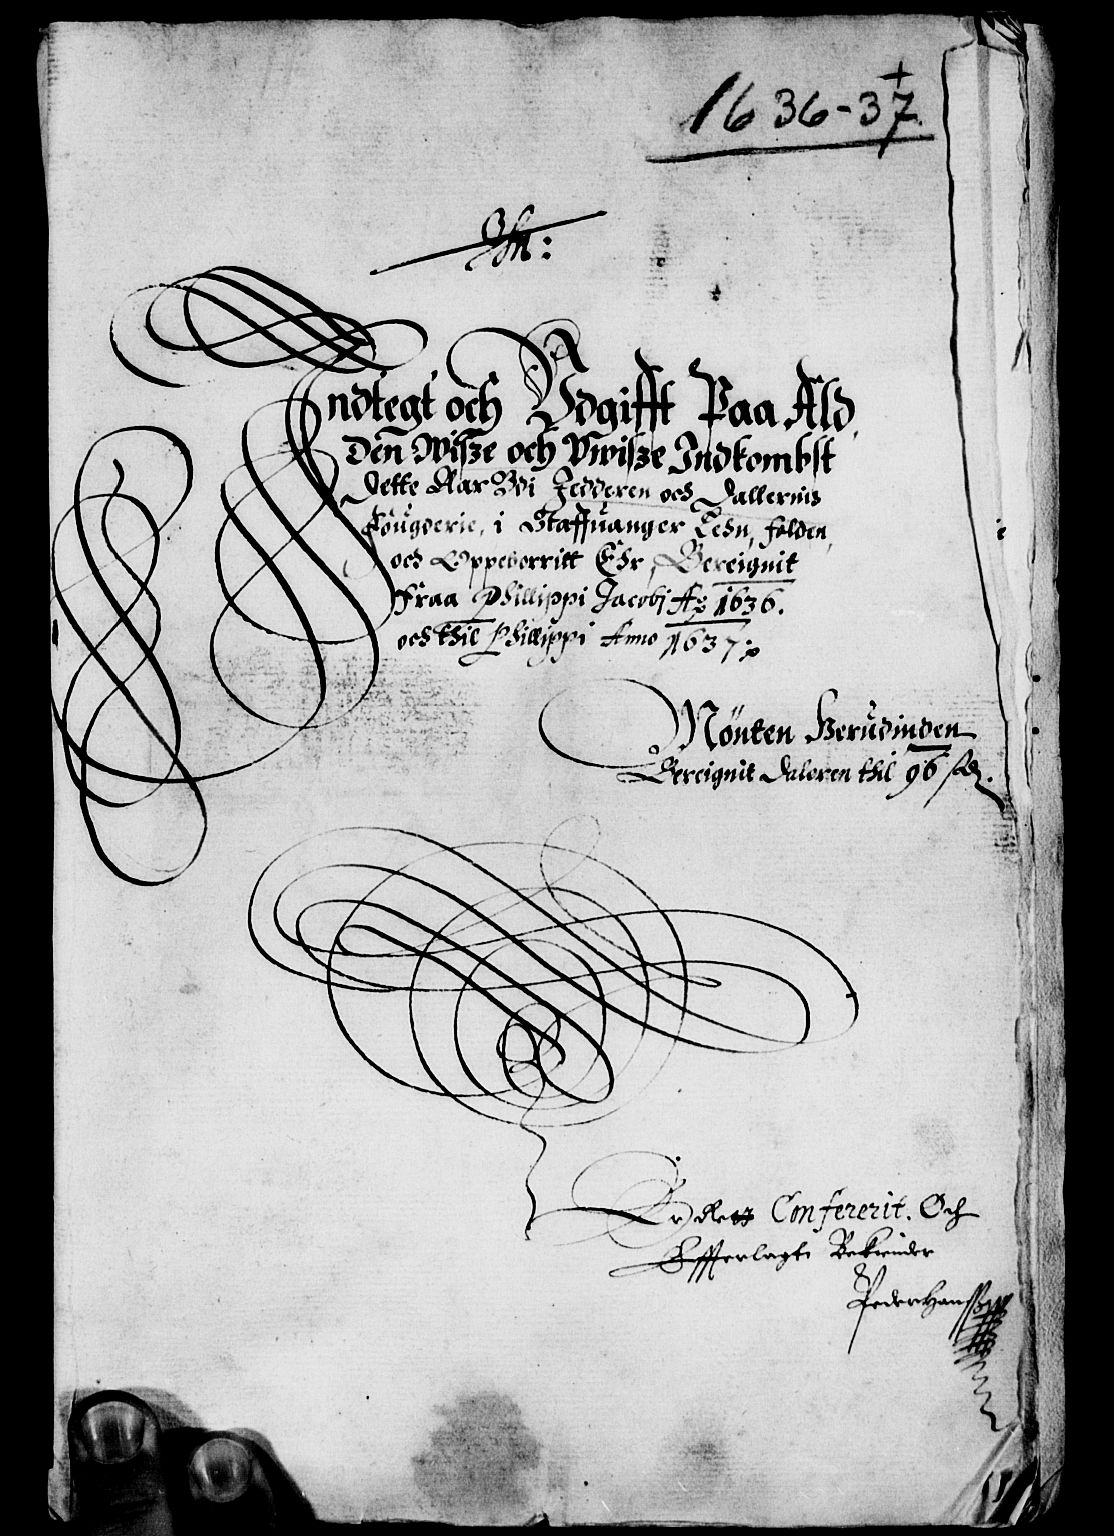 1636-37.
Indtegt och Vdgifft Paa Ald
Den Wisze och Vwisze Indkombst
Dette Aar Vdi Jedderen och Dallernis
Fougderie, i Staffuanger Lehn, falden,
och Oppeborritt Ehr, Bereignit
Fraa Phillippi Jacobj Ao 1636.
och thil Phillippi Anno 1637:
Mönten Herudinden
Bereignit Daleren thil 96 sk.
Er dett Confererit. Och
Efferlagt Bekiender
Peder Hanssen